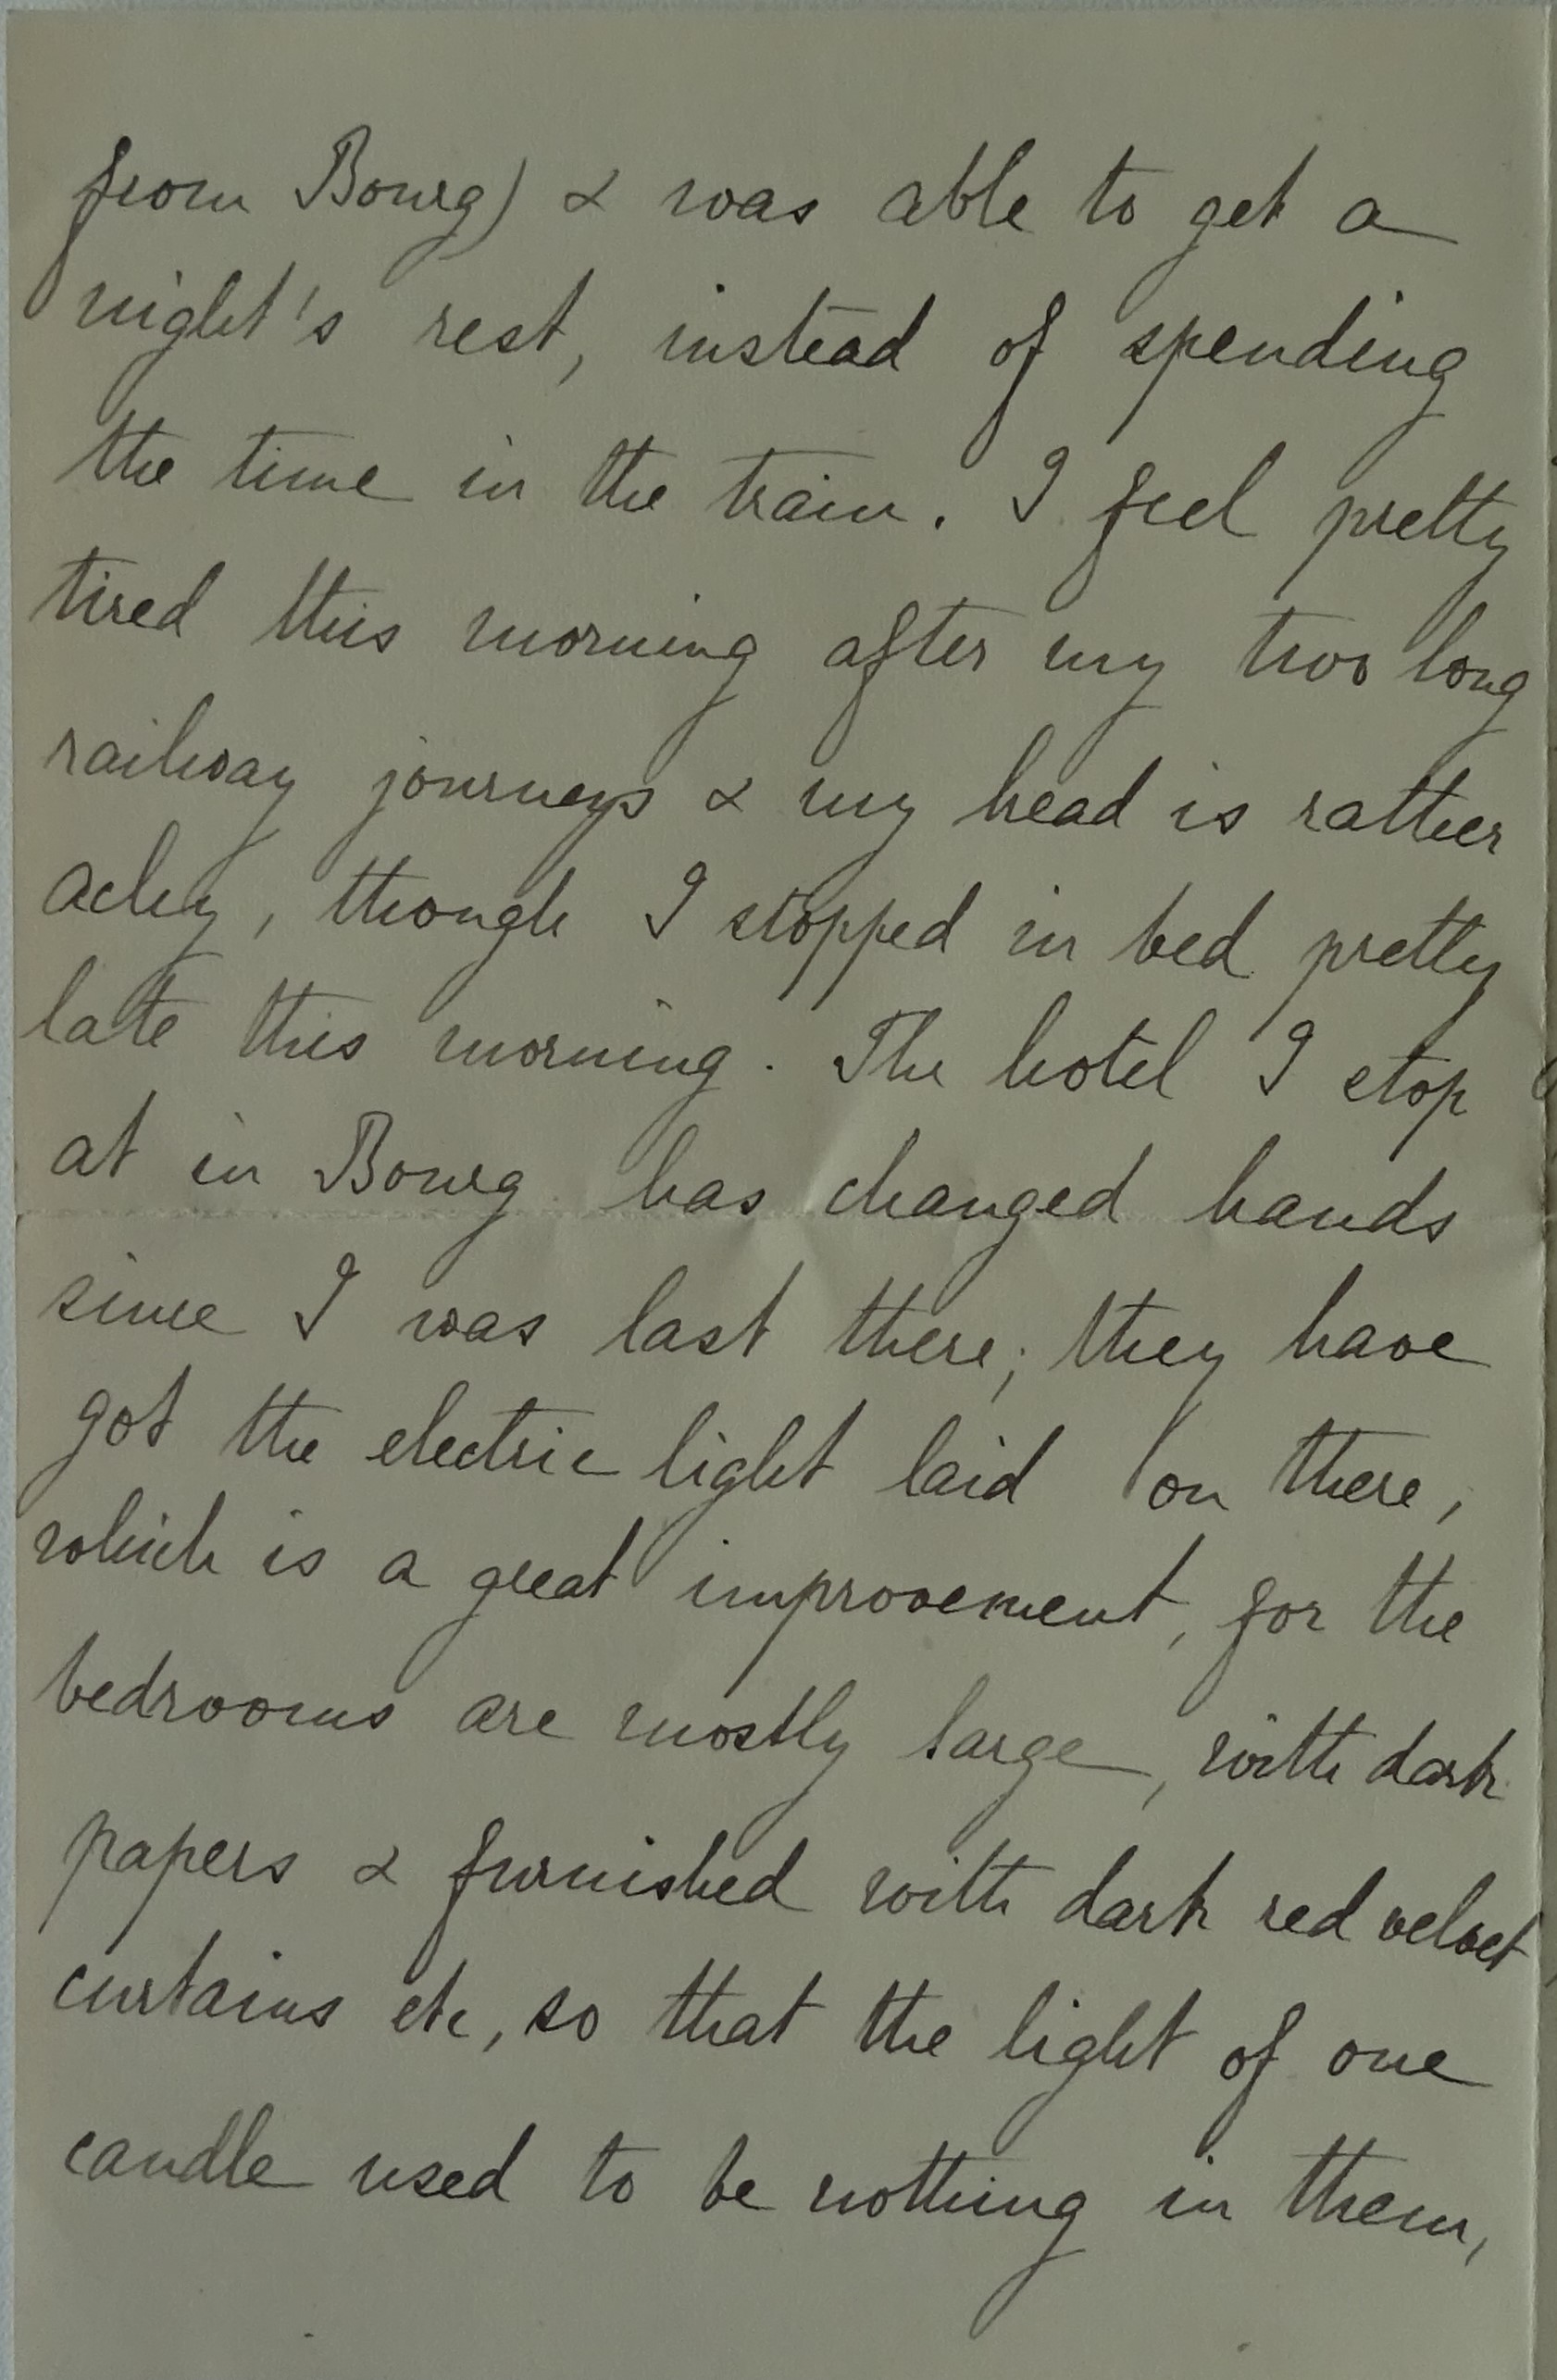 from Bourg) & was able to get a
night's rest, instead of spending
the time in the train. I feel pretty
tired this morning after my two long
railway journeys & my head is rather
achy, though I stopped in bed pretty
late this morning. The hotel I stop
at in Bourg has changed hands
since I was last there; they have
got the electric light laid on there,
which is a great improvement, for the
bedrooms are mostly large, with dark
papers & furnished with dark red velvet
curtains etc, so that the light of one
candle used to be nothing in them,